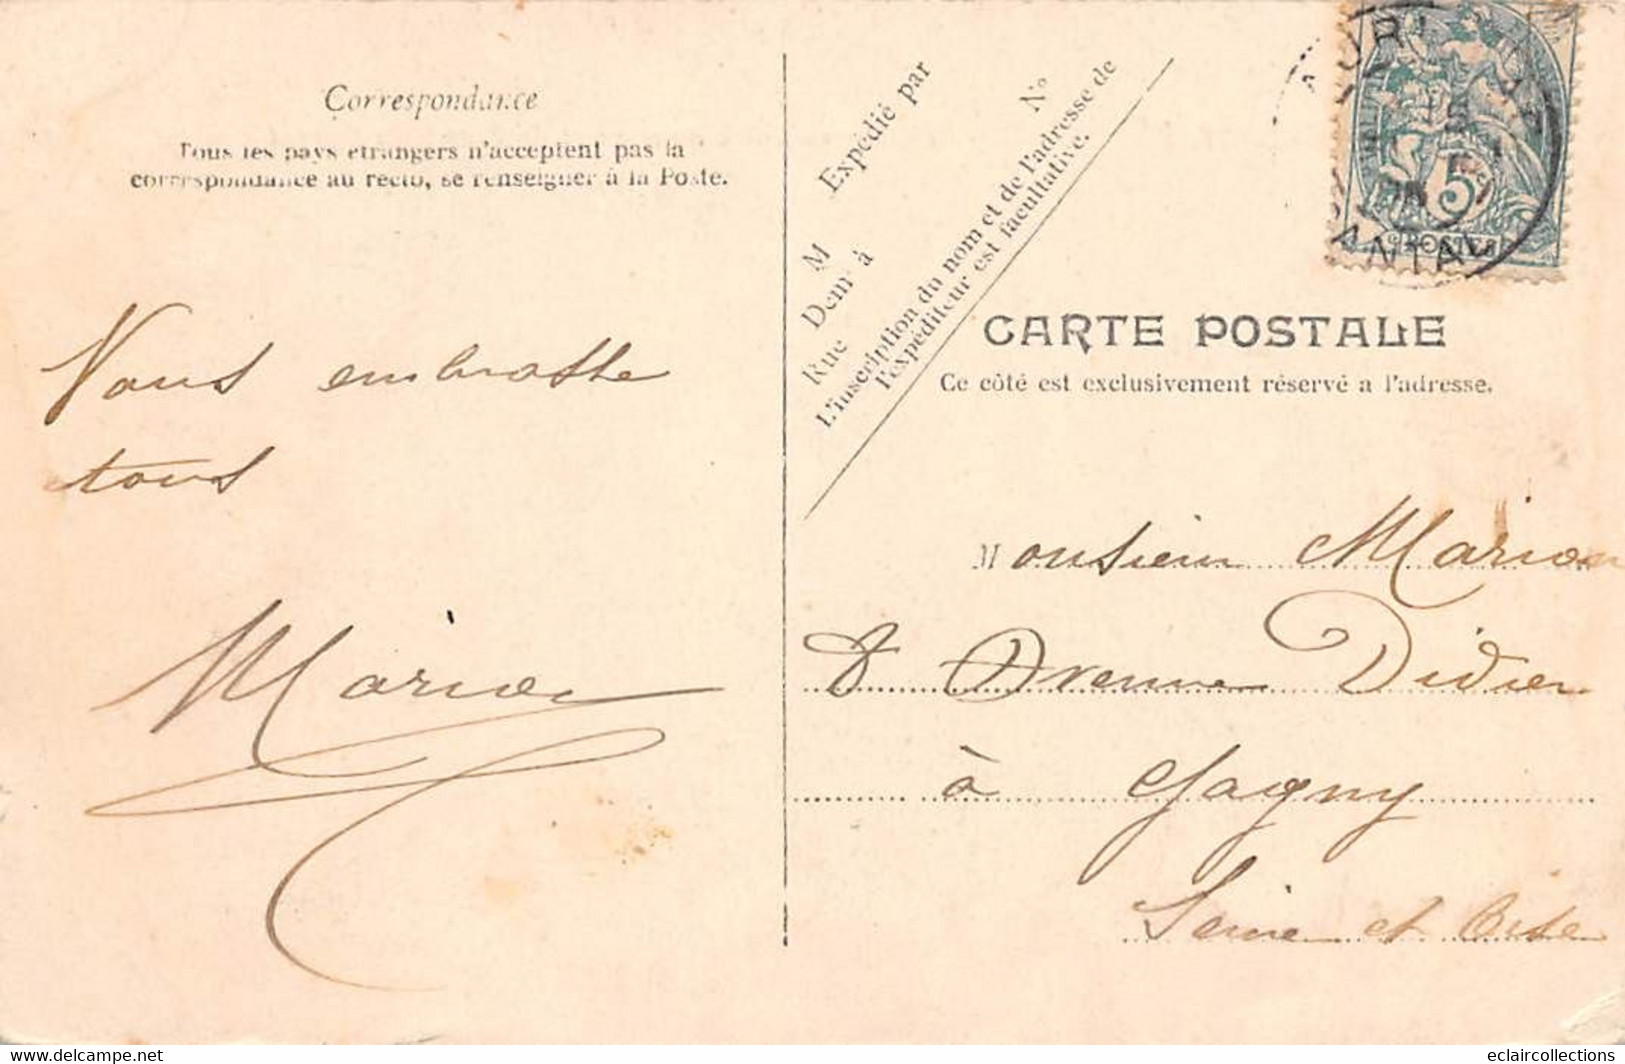 Correspondance
Tous les pays étrangers n'acceptent pas la
correspondance au recto, se renseigner à la Poste.
Vous embrasse
tous
Marion
Expédié par
M
Demt à
Rue
N°
L'inscription du nom et de l'adresse de
l'expéditeur est facultative.
5c
POSTES
CARTE POSTALE
Ce côté est exclusivement réservé a l'adresse.
Monsieur Marion
8 Avenue Didier
à Gagny
Seine et Oise
delcampe.net
eclaircollections